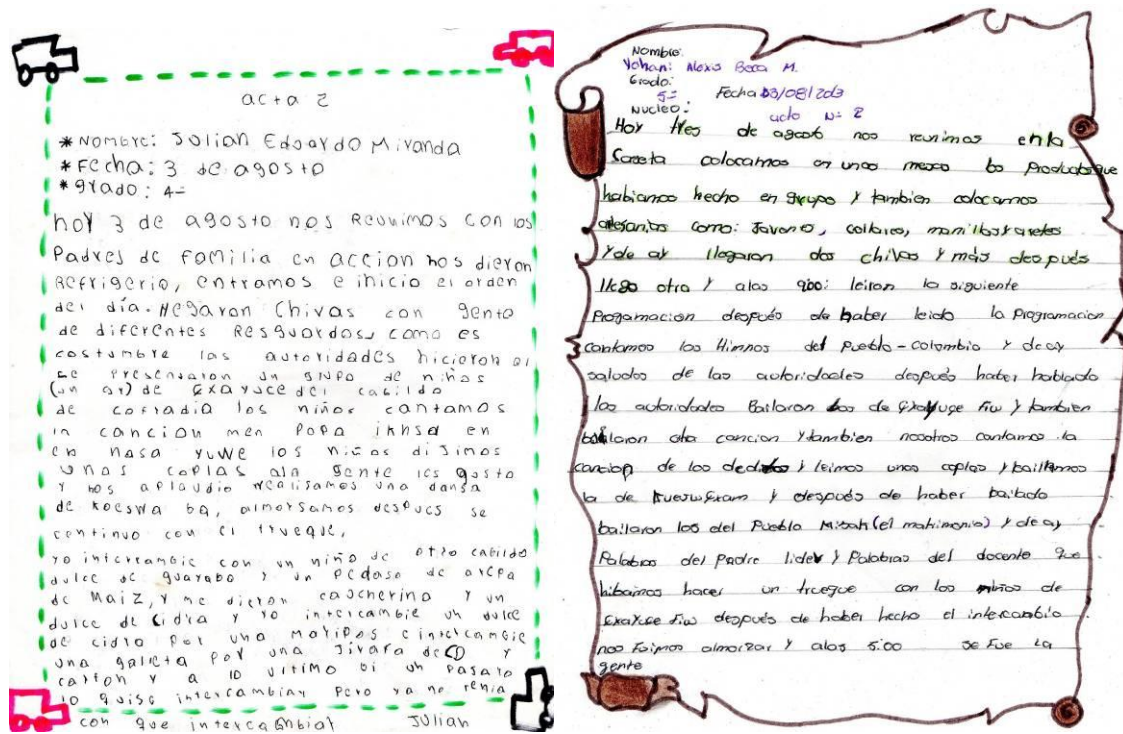 acta 2
* Nombre: Julian Edoardo Miranda
* Fecha: 3 de agosto
* grado: 4=
hoy 3 de agosto nos Reunimos con los
Padres de Familia en accion nos dieron
Refrigerio, entramos e inicio el orden
del día. llegaron Chivas con gente
de diferentes Resguardos, como es
costumbre las autoridades hicieron el
se presentaron un grupo de niños
de Exayuce del cabildo
de cofradia los niños cantamos
la cancion men Popa
en nasa yuwe los niños dijimos
unas coplas ala gente les gusto
y nos aplaudio realisamos una dansa
de Koeswa 6a, almorsamos despues se
continuo con el trueque,
yo intercambie con un niño de otro cabildo
dulce de guayaba y un pedaso de arepa
de Maiz, y me dieron caucherina y un
dulce de cidra y yo intercambie un dulce
de cidra por una maripos e intercambie
una galleta por una Jirara de CD y
carton y a lo ultimo bi un Pasaro
lo quise intercambiar pero ya no tenia
con que intercambiar Julian
Nombre:
Yohani Alexis Baca M.
Grado:
5= Fecha 03/08/2013
Nucleo: acta N= 2
Hoy tres de agosto nos reunimos en la
Caseta colocamos en unas mesas los Productos que
habiamos hecho en grupo y tambien colocamos
artesanias como: Javones, collares, manillas y aretes
Y de ay llegaron dos chivas y más después
llego otra y alas 900: leiron la siguiente
Progamacion después de haber leido la Programacion
cantamos los Himnos del Pueblo-colombia y de ay
saludos de las autoridades después haber hablado
las autoridades Bailaron los de Exayuce Fiw y tambien
bailaron ota cancion y tambien nosotros cantamos la
cancion de los deditos y leimos unas coplas y baillamos
la de Kuesw Exam y después de haber bailado
bailaron los del Pueblo Misak (el matrimonio) y de ay
Palabras del Padre lider y Palabras del docente que
hibamos hacer un trueque con los niños de
Exayuce Fiw después de haber hecho el intercambio
nos Foimos almorzar y alas 5:00 se Fue la
gente